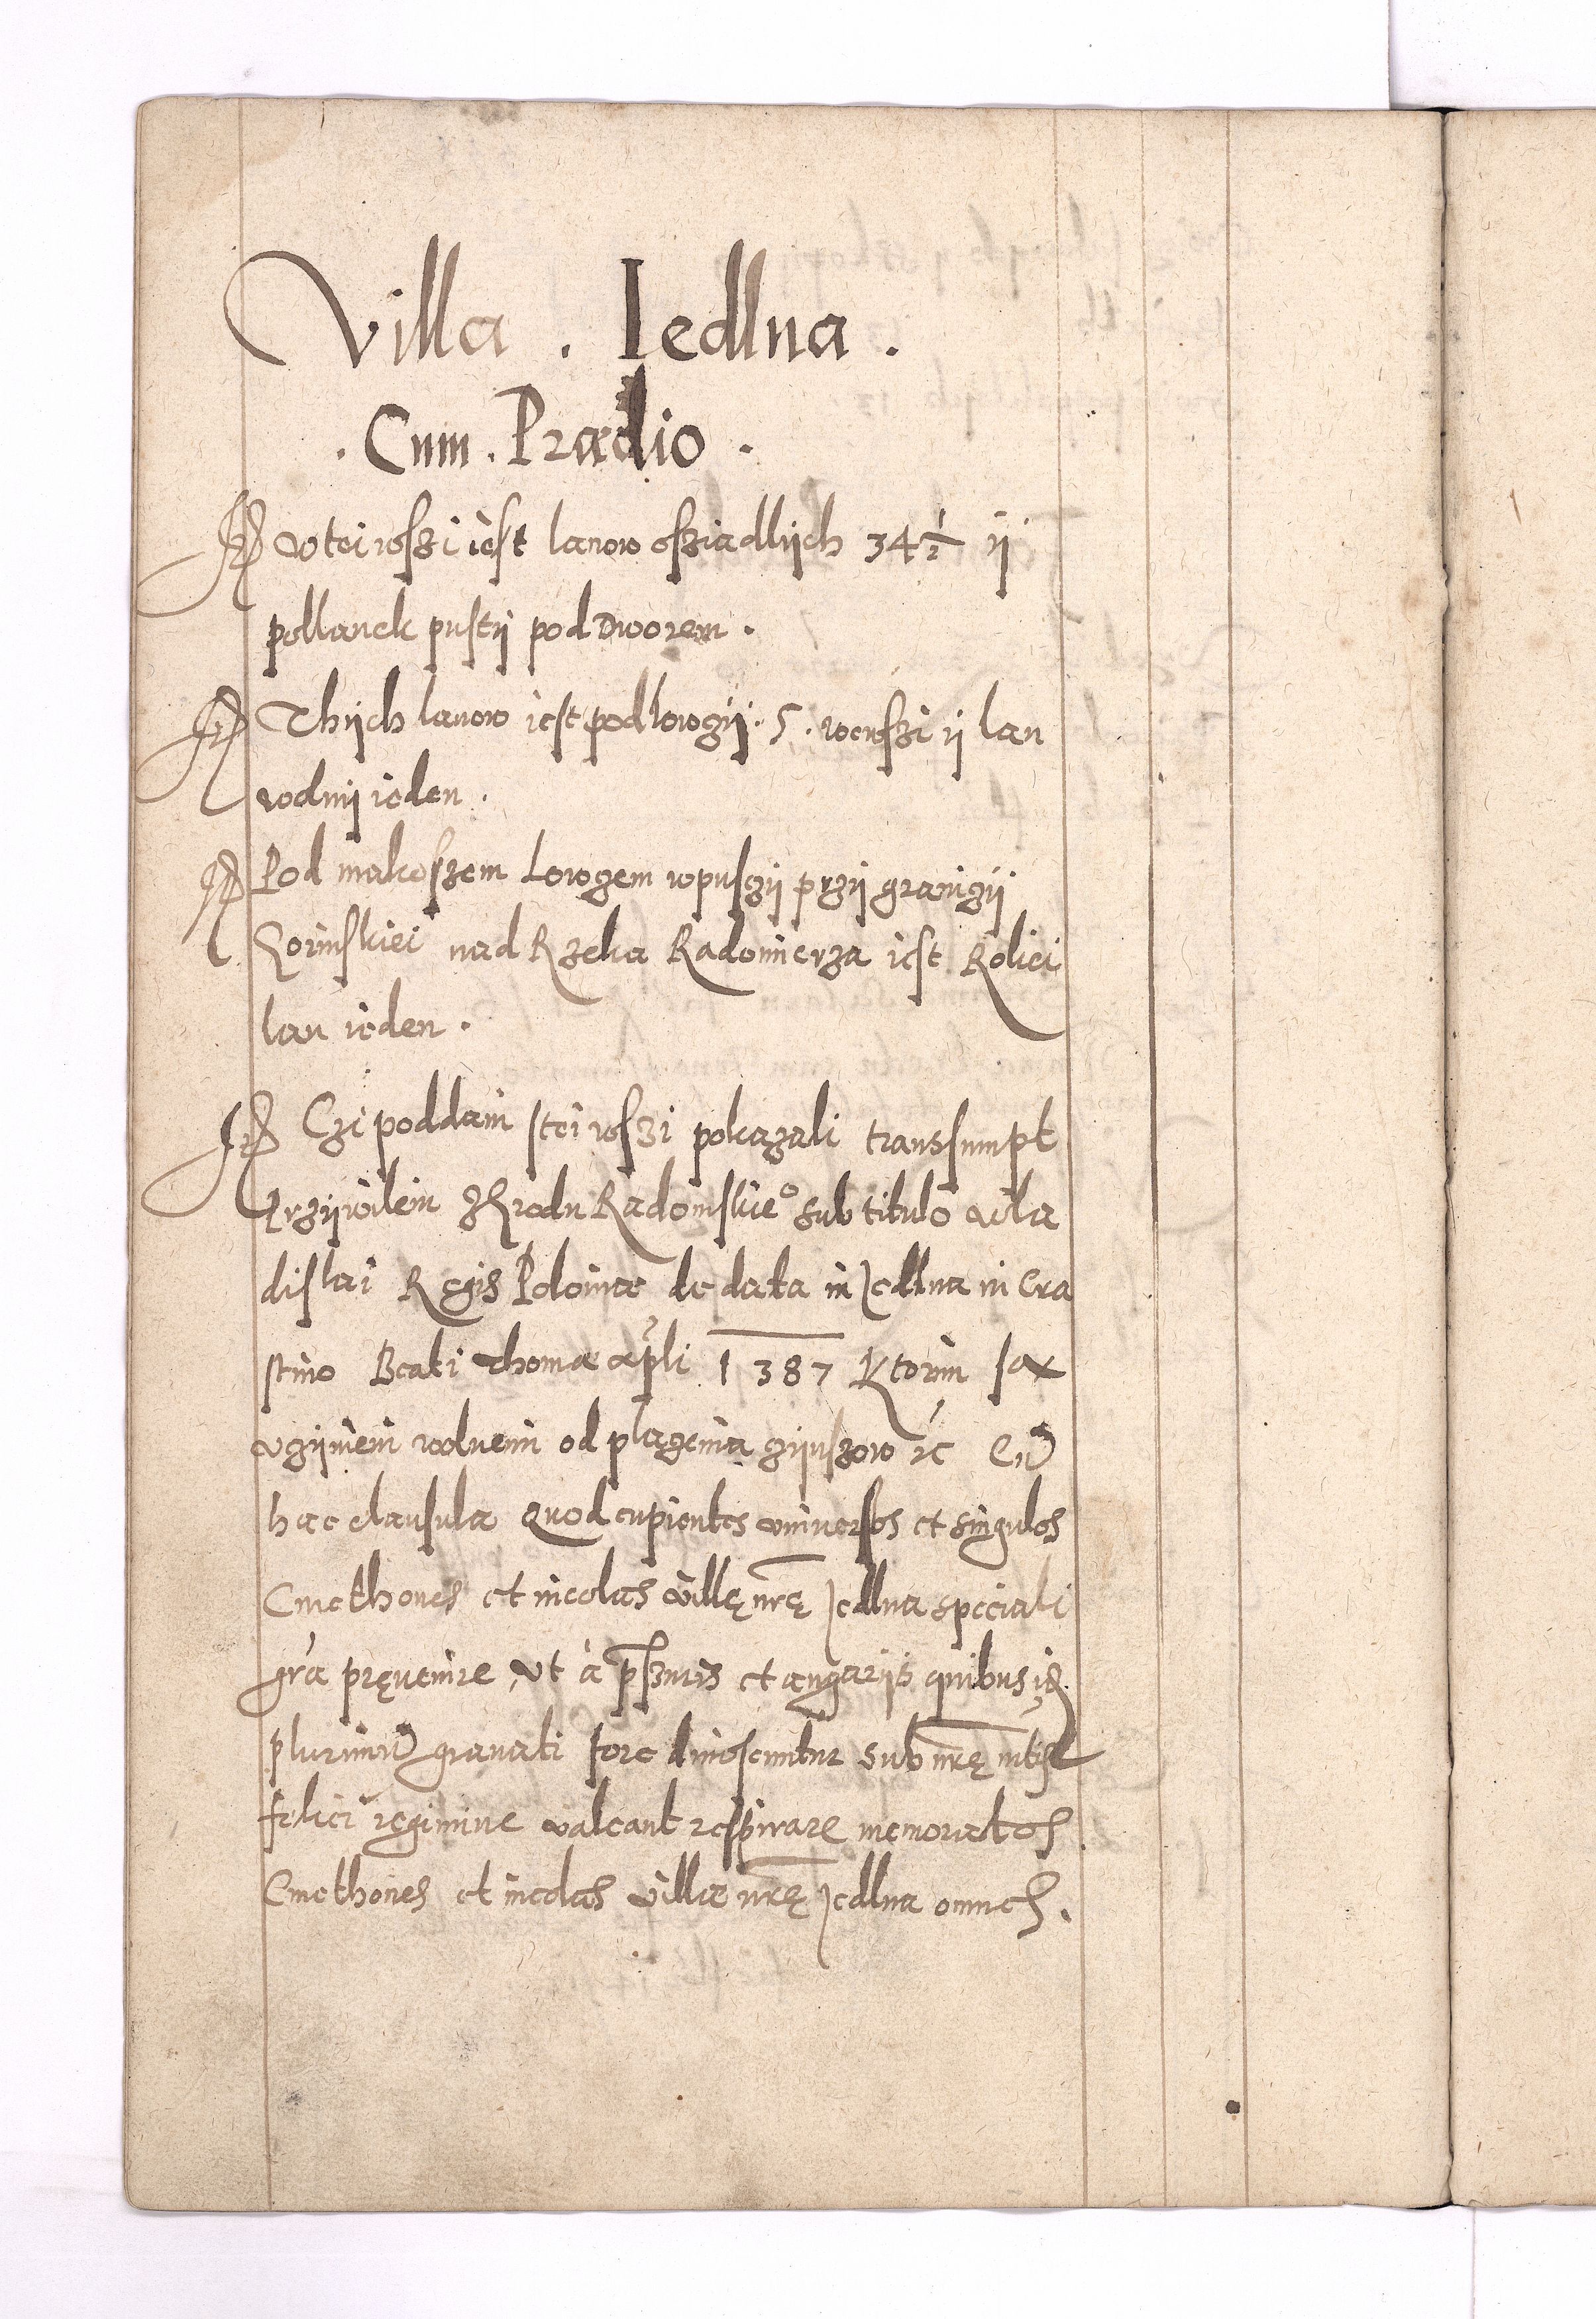 Villa . Iedlna .
. Cum . Prædio .
It wtei wſzi ieſt lanow oſziadlijch 34½ ij
pollanek puſtij pod Dworem .
It Thijch lanow ieſt podlowgij . 5 . wewſzi ij lan
wolnij ieden .
It Pod makoſzem Lowgem wpuſzij przij granigij
nad Rzeka Radomierza ieſt Rolіei
lan ieden .
It Czi poddani ſtei wſzi pokazali transſumpt
Przijwilein ZGrodu Radomſkieº sub titulo Wla
diſlai Regis Poloniæ de data in Jedlna in Cra
ſtino Beati Thomæ apli 1387 Ktorim ſą
vgijnieni wolnemi od płazenia zijnſzow ꝛc Cū
hac clauſula Quod cupientes vniuerſos et singulos
Cmethones et incolas villę nrę Jedlna speciali
gra pręuenire, vt à et angarijs quibus
plurimū grauati fore dinoſcuntur sub nrę
felici regimine valeant reſpirare memoratos
Cmethones et incolas villæ nrę Jedlna omnes .